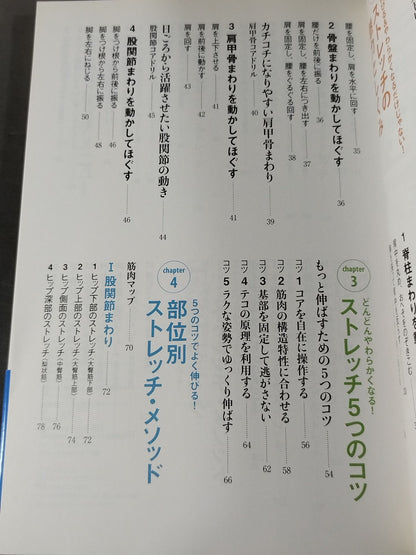 腰を固定し、肩を水平に回す 35
2 骨盤まわりを動かしてほぐす 36
腰だけを前後に振る 36
肩を固定し、腰を左右につき出す 37
肩を固定し、腰をぐるぐる回す 38
カチコチになりやすい肩甲骨まわり 39
肩甲骨コアドリル 40
3 肩甲骨まわりを動かしてほぐす 41
肩を上下させる 41
肩を前後に動かす 42
肩を回す 43
日ごろから活躍させたい股関節の動き 44
股関節コアドリル 45
4 股関節まわりを動かしてほぐす 46
脚をつけ根から前後に振る 46
脚をつけ根から左右に振る 48
脚を左右にねじる 50
chapter 3
どんどんやわらかくなる!
ストレッチ5つのコツ
もっと伸ばすための5つのコツ 54
コツ1 コアを自在に操作する 56
コツ2 筋肉の構造特性に合わせる 58
コツ3 基部を固定して逃がさない 62
コツ4 テコの原理を利用する 64
コツ5 ラクな姿勢でゆっくり伸ばす 66
chapter 4
5つのコツでよく伸びる!
部位別
ストレッチ・メソッド
筋肉マップ 70
I 股関節まわり
1 ヒップ下部のストレッチ(大臀筋下部) 72
2 ヒップ上部のストレッチ(大臀筋上部) 74
3 ヒップ側面のストレッチ(中臀筋) 76
4 ヒップ深部のストレッチ(梨状筋) 78
72